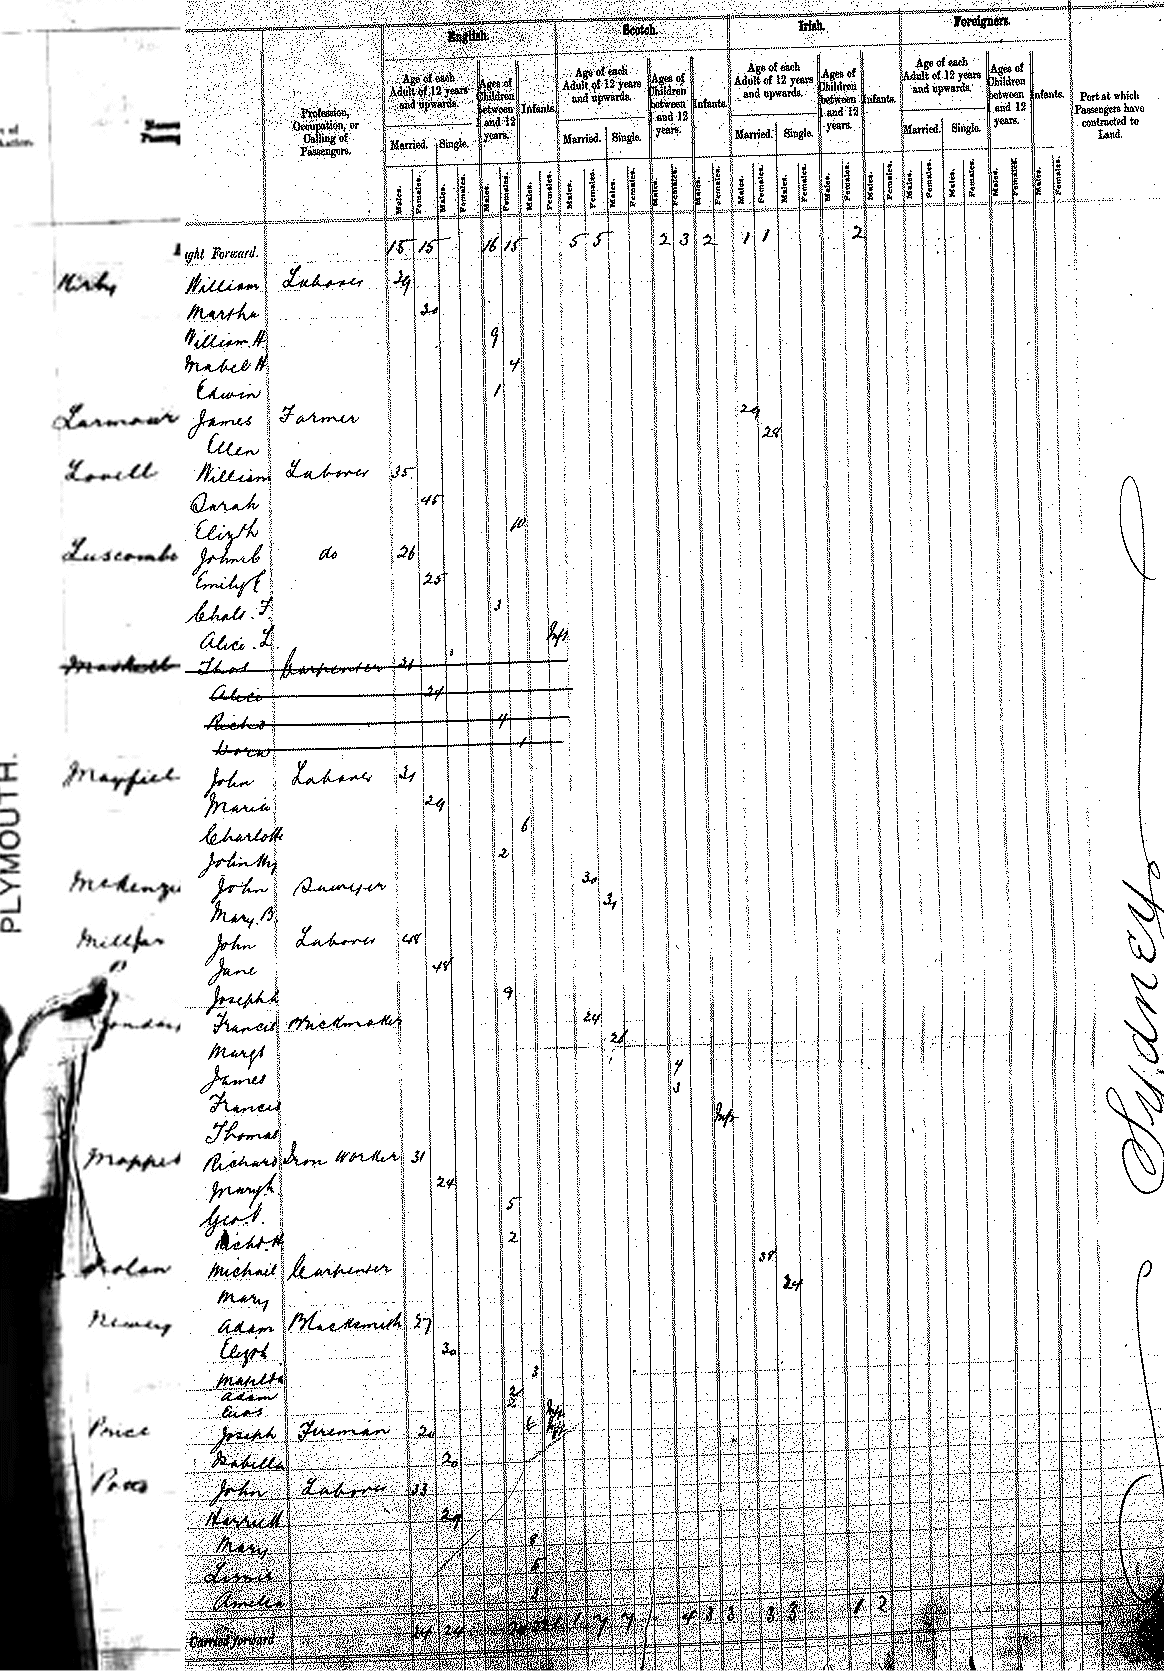 English. Scotch. Irish. Foreigners.
Profession, Occupation, or Calling of Passengers.
Age of each Adult of 12 years and upwards. Ages of Children between 1 and 12 years. Infants. Age of each Adult of 12 years and upwards. Ages of Children between 1 and 12 years. Infants. Age of each Adult of 12 years and upwards. Ages of Children between 1 and 12 years. Infants. Age of each Adult of 12 years and upwards. Ages of Children between 1 and 12 years. Infants.
Port at which Passengers have contracted to Land.
Married. Single. Married. Single. Married. Single. Married. Single.
Males. Females. Males. Females. Males. Females. Males. Females. Males. Females. Males. Females. Males. Females. Males. Females. Males. Females. Males. Females. Males. Females. Males. Females. Males. Females. Males. Females. Males. Females. Males. Females.
ght Forward. 15 15 16 15 5 5 2 3 2 1 1 2
Kirby William Laborer 29
Martha 30
William H 9
Mabel H 4
Edwin 1
Larmour James Farmer 29
Ellen 28
Lovell William Laborer 35
Sarah 45
Elizth 10
Luscombe John C do 26
Emily E 25
Chals. F. 3
Alice. L. Inft
Maskell Thos Carpenter 21
Alice 24
Richd 4
1
Mayfiel John Laborer 31
Maria 29
Charlotte 6
John Hy 2
McKenzi John Sawyer 30
Mary. B. 31
Millar John Laborer 48
Jane 48
Joseph 9
Francis Brickmaker 24
Margt 26
James 4
Francis 3
Thomas Inft
Moppet Richard Iron Worker 31
Mary 24
Geo. 5
Richd. H 2
Nolan Michail Carpenter 38
Mary 24
Newey Adam Blacksmith 37
Elizth 30
Matilda 3
Adam 2
Price Joseph Fireman 20
Isabella 20
John Laborer 33
Harriett 29
Mary 8
5
Amelia
Carried forward 24 24
PLYMOUTH.
Sydney